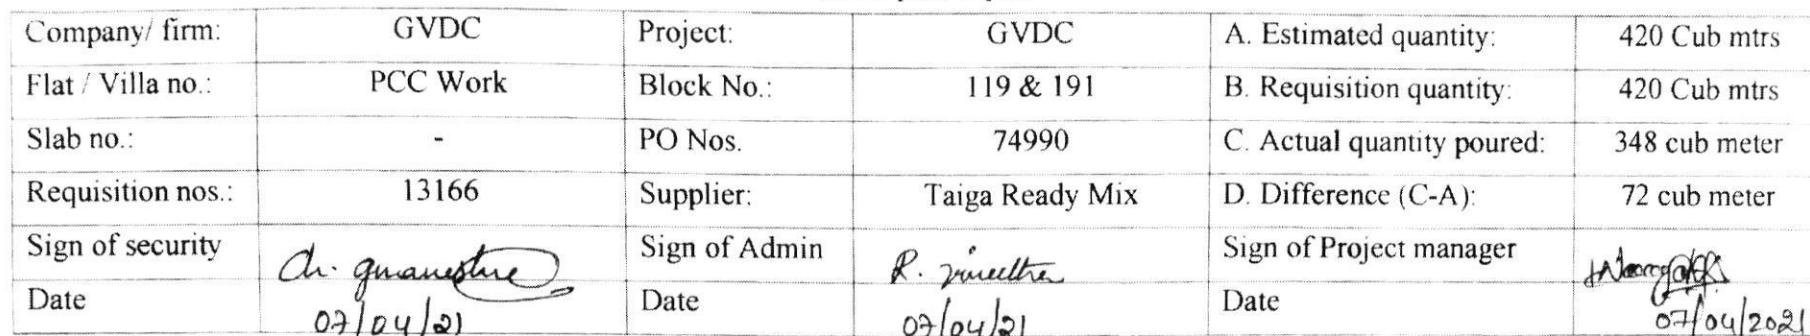 Company/ firm: GVDC Project: GVDC A. Estimated quantity: 420 Cub mtrs
Flat / Villa no.: PCC Work Block No.: 119 & 191 B. Requisition quantity: 420 Cub mtrs
Slab no.: - PO Nos. 74990 C. Actual quantity poured: 348 cub meter
Requisition nos.: 13166 Supplier: Taiga Ready Mix D. Difference (C-A): 72 cub meter
Sign of security Sign of Admin R. Sign of Project manager
Date 07/04/21 Date 07/04/21 Date 07/04/2021